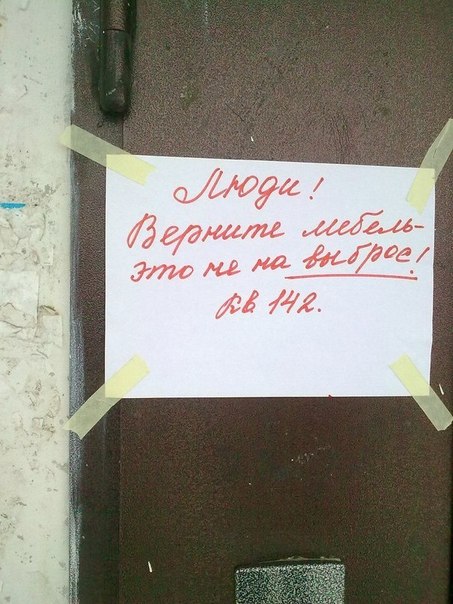 Люди!
Верните мебель-
это не на выброс!
кв 142.